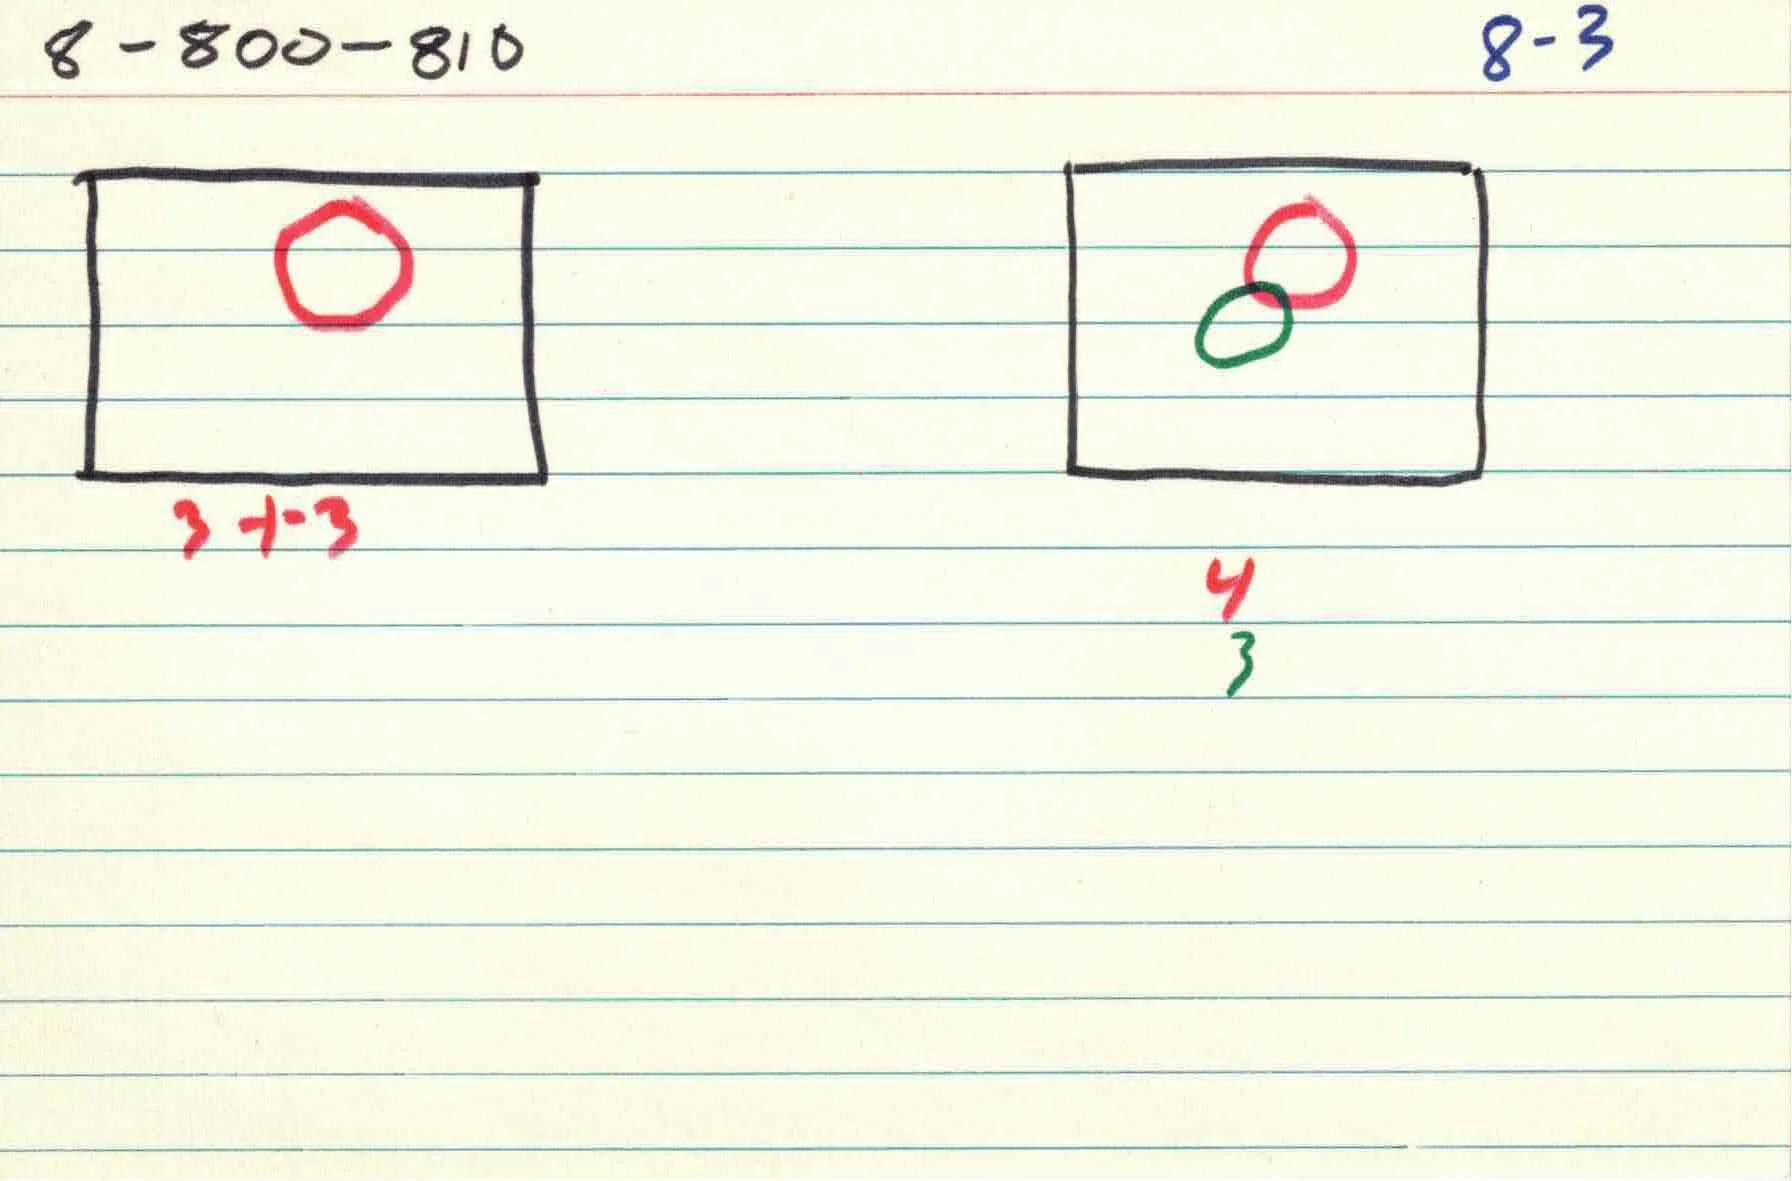 8-800-810
8-3
3+-3
4
3